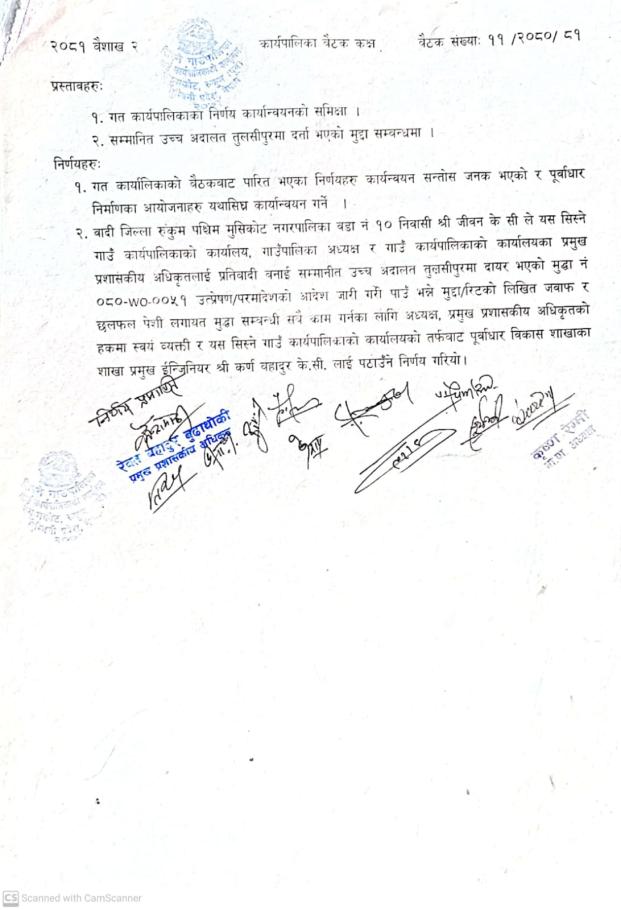 २०८१ वैशाख २ कार्यपालिका वैटक कक्ष वैटक संख्याः ११ /२०८०/ ८१
प्रस्तावहरुः
१. गत कार्यपालिकाका निर्णय कार्यान्वयनको समिक्षा ।
२. सम्मानित उच्च अदालत तुलसीपुरमा दर्ता भएको मुद्दा सम्वन्धमा ।
निर्णयहरुः
१. गत कार्यालिकाको वैठकवाट पारित भएका निर्णयहरु कार्यन्वयन सन्तोस जनक भएको र पूर्वाधार
निर्माणका आयोजनाहरु यथासिघ्र कार्यान्वयन गर्ने ।
२. वादी जिल्ला रुकुम पश्चिम मुसिकोट नगरपालिका वडा नं १० निवासी श्री जीवन के सी ले यस सिस्ने
गाउँ कार्यपालिकाको कार्यालय, गाउँपालिका अध्यक्ष र गाउँ कार्यपालिकाको कार्यालयका प्रमुख
प्रशासकीय अधिकृतलाई प्रतिवादी वनाई सम्मानीत उच्च अदालत तुलसीपुरमा दायर भएको मुद्धा नं
०८०-WO-००५१ उत्प्रेषण/परमादेशको आदेश जारी गरी पाउँ भन्ने मुद्दा/रिटको लिखित जवाफ र
छलफल पेशी लगायत मुद्धा सम्वन्धी सवै काम गर्नका लागि अध्यक्ष, प्रमुख प्रशासकीय अधिकृतको
हकमा स्वयं व्यक्ती र यस सिस्ने गाउँ कार्यपालिकाको कार्यालयको तर्फवाट पूर्वाधार विकास शाखाका
शाखा प्रमुख ईन्जिनियर श्री कर्ण वहादुर के.सी. लाई पठाउँने निर्णय गरियो।
निर्णय प्रमाणित
रेवत बहादुर बुढाथोकी
प्रमुख प्रशासकीय अधिकृत
CS Scanned with CamScanner